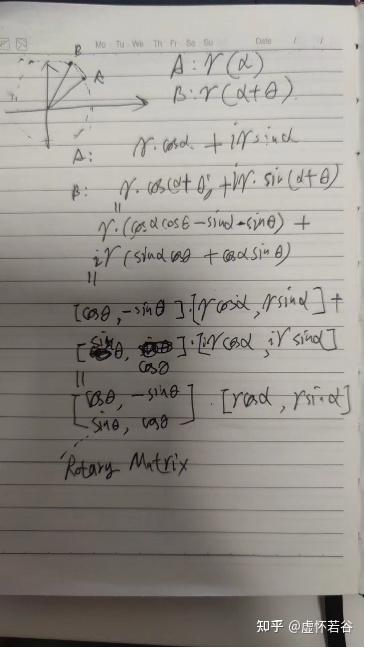 Mo Tu We Th Fr Sa Su Date / /
B
A
A: r(α)
B: r(α+θ)
A: r·cosα + irsinα
B: r·cos(α+θ) + ir·sin(α+θ)
||
r·(cosαcosθ-sinα·sinθ) +
ir(sinαcosθ + cosαsinθ)
||
[cosθ, -sinθ]·[rcosα, rsinα] +
[sinθ, cosθ]·[ircosα, irsinα]
||
[cosθ, -sinθ
sinθ, cosθ]·[rcosα, rsinα]
Rotary Matrix
知乎 @虚怀若谷